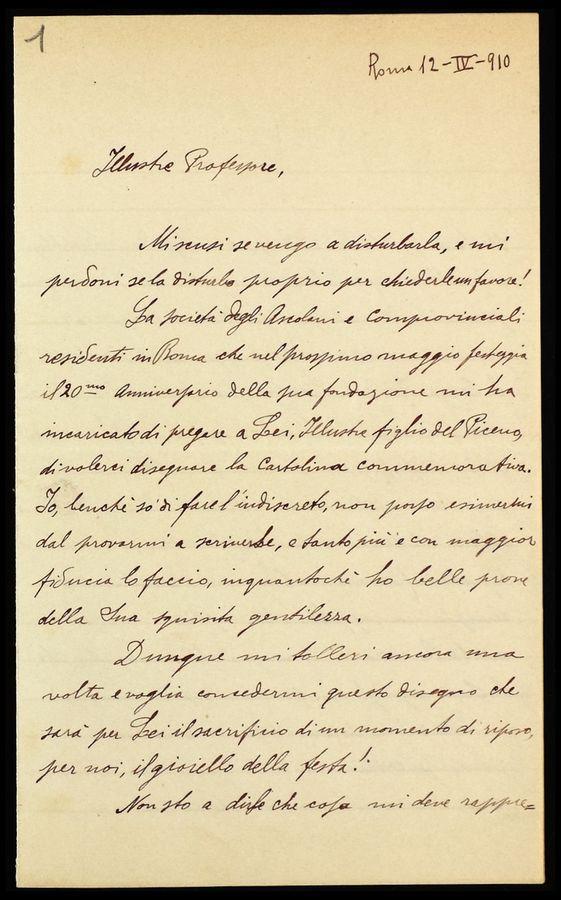 1
Roma 12-IV-910
Illustre Professore,
Mi scusi se vengo a disturbarla, e mi
perdoni se la disturbo proprio per chiederle un favore!
La società degli Ascolani e Comprovinciali
residenti in Roma che nel prossimo maggio festeggia
il 20mo Anniversario della sua fondazione mi ha
incaricato di pregare a Lei, Illustre figlio del Piceno,
di volerci disegnare la Cartolina commemorativa.
Io, benchè so' di fare l'indiscreto, non posso esimermi
dal provarmi a scriverle, e tanto più e con maggior
fiducia lo faccio, inquantochè ho belle prove
della Sua squisita gentilezza.
Dunque mi tolleri ancora una
volta e voglia concedermi questo disegno che
sarà per Lei il sacrificio di un momento di riposo,
per noi, il gioiello della festa!
Non sto a dirle che cosa mi deve rappre=